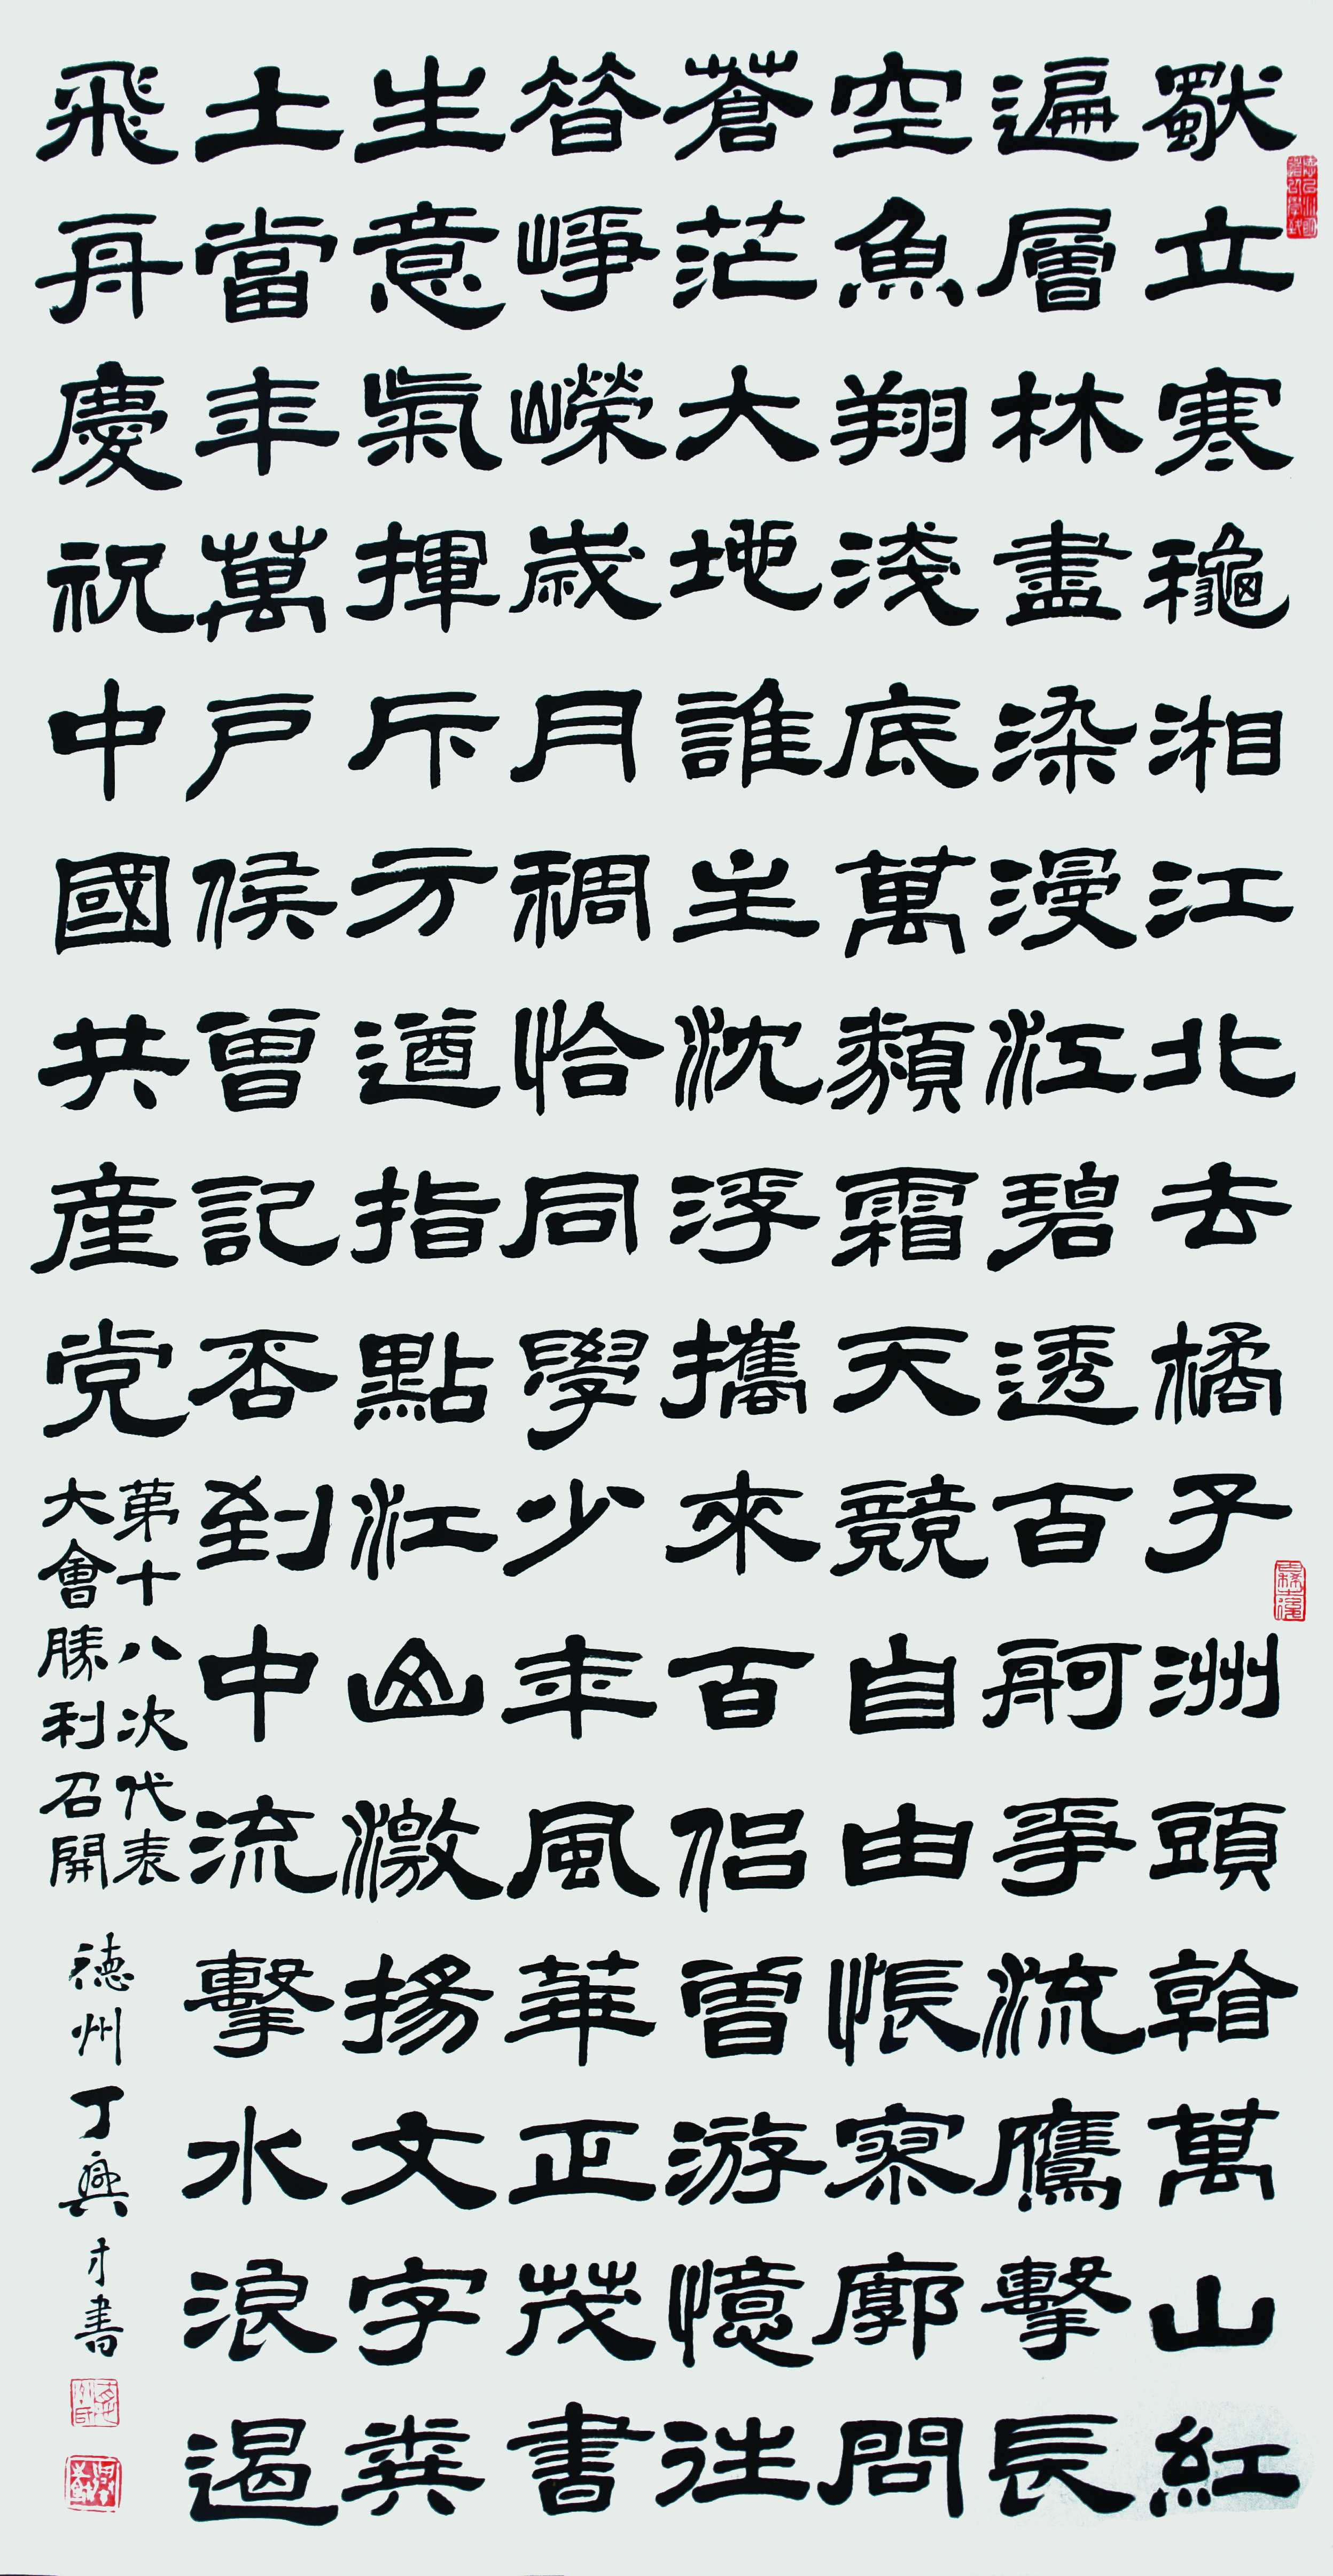 獨立寒龝湘江北去橘子洲頭看萬山紅
遍層林盡染漫江碧透百舸爭流鷹擊長
空魚翔淺底萬類霜天競自由悵寥廓問
蒼茫大地誰主沈浮攜來百侶曾游憶往
昔崢嶸歲月稠恰同學少年風華正茂書
生意氣揮斥方遒指點江山激揚文字糞
土當年萬戶侯曾記否到中流擊水浪遏
飛舟慶祝中國共産党
第十八次代表
大會勝利召開
德州丁興才書